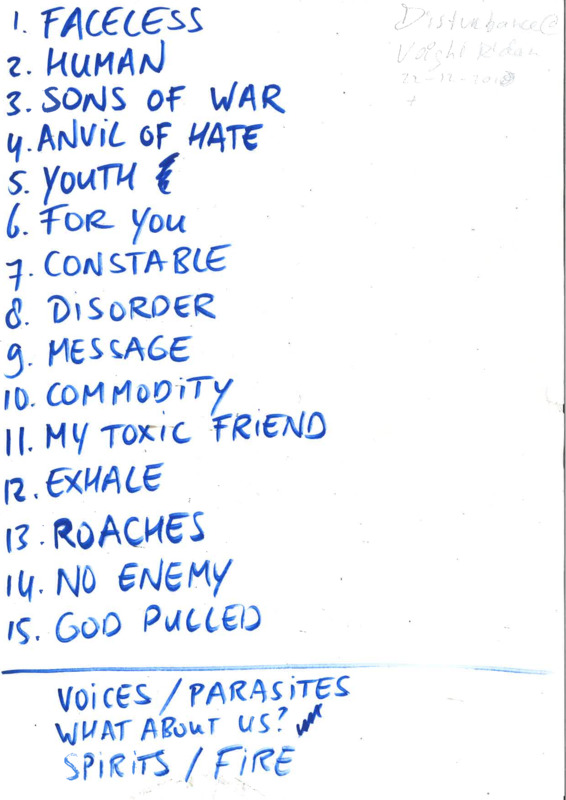 1. FACELESS
2. HUMAN
3. SONS OF WAR
4. ANVIL OF HATE
5. YOUTH
6. FOR YOU
7. CONSTABLE
8. DISORDER
9. MESSAGE
10. COMMODITY
11. MY TOXIC FRIEND
12. EXHALE
13. ROACHES
14. NO ENEMY
15. GOD PULLED
VOICES / PARASITES
WHAT ABOUT US?
SPIRITS / FIRE
Disturbance @